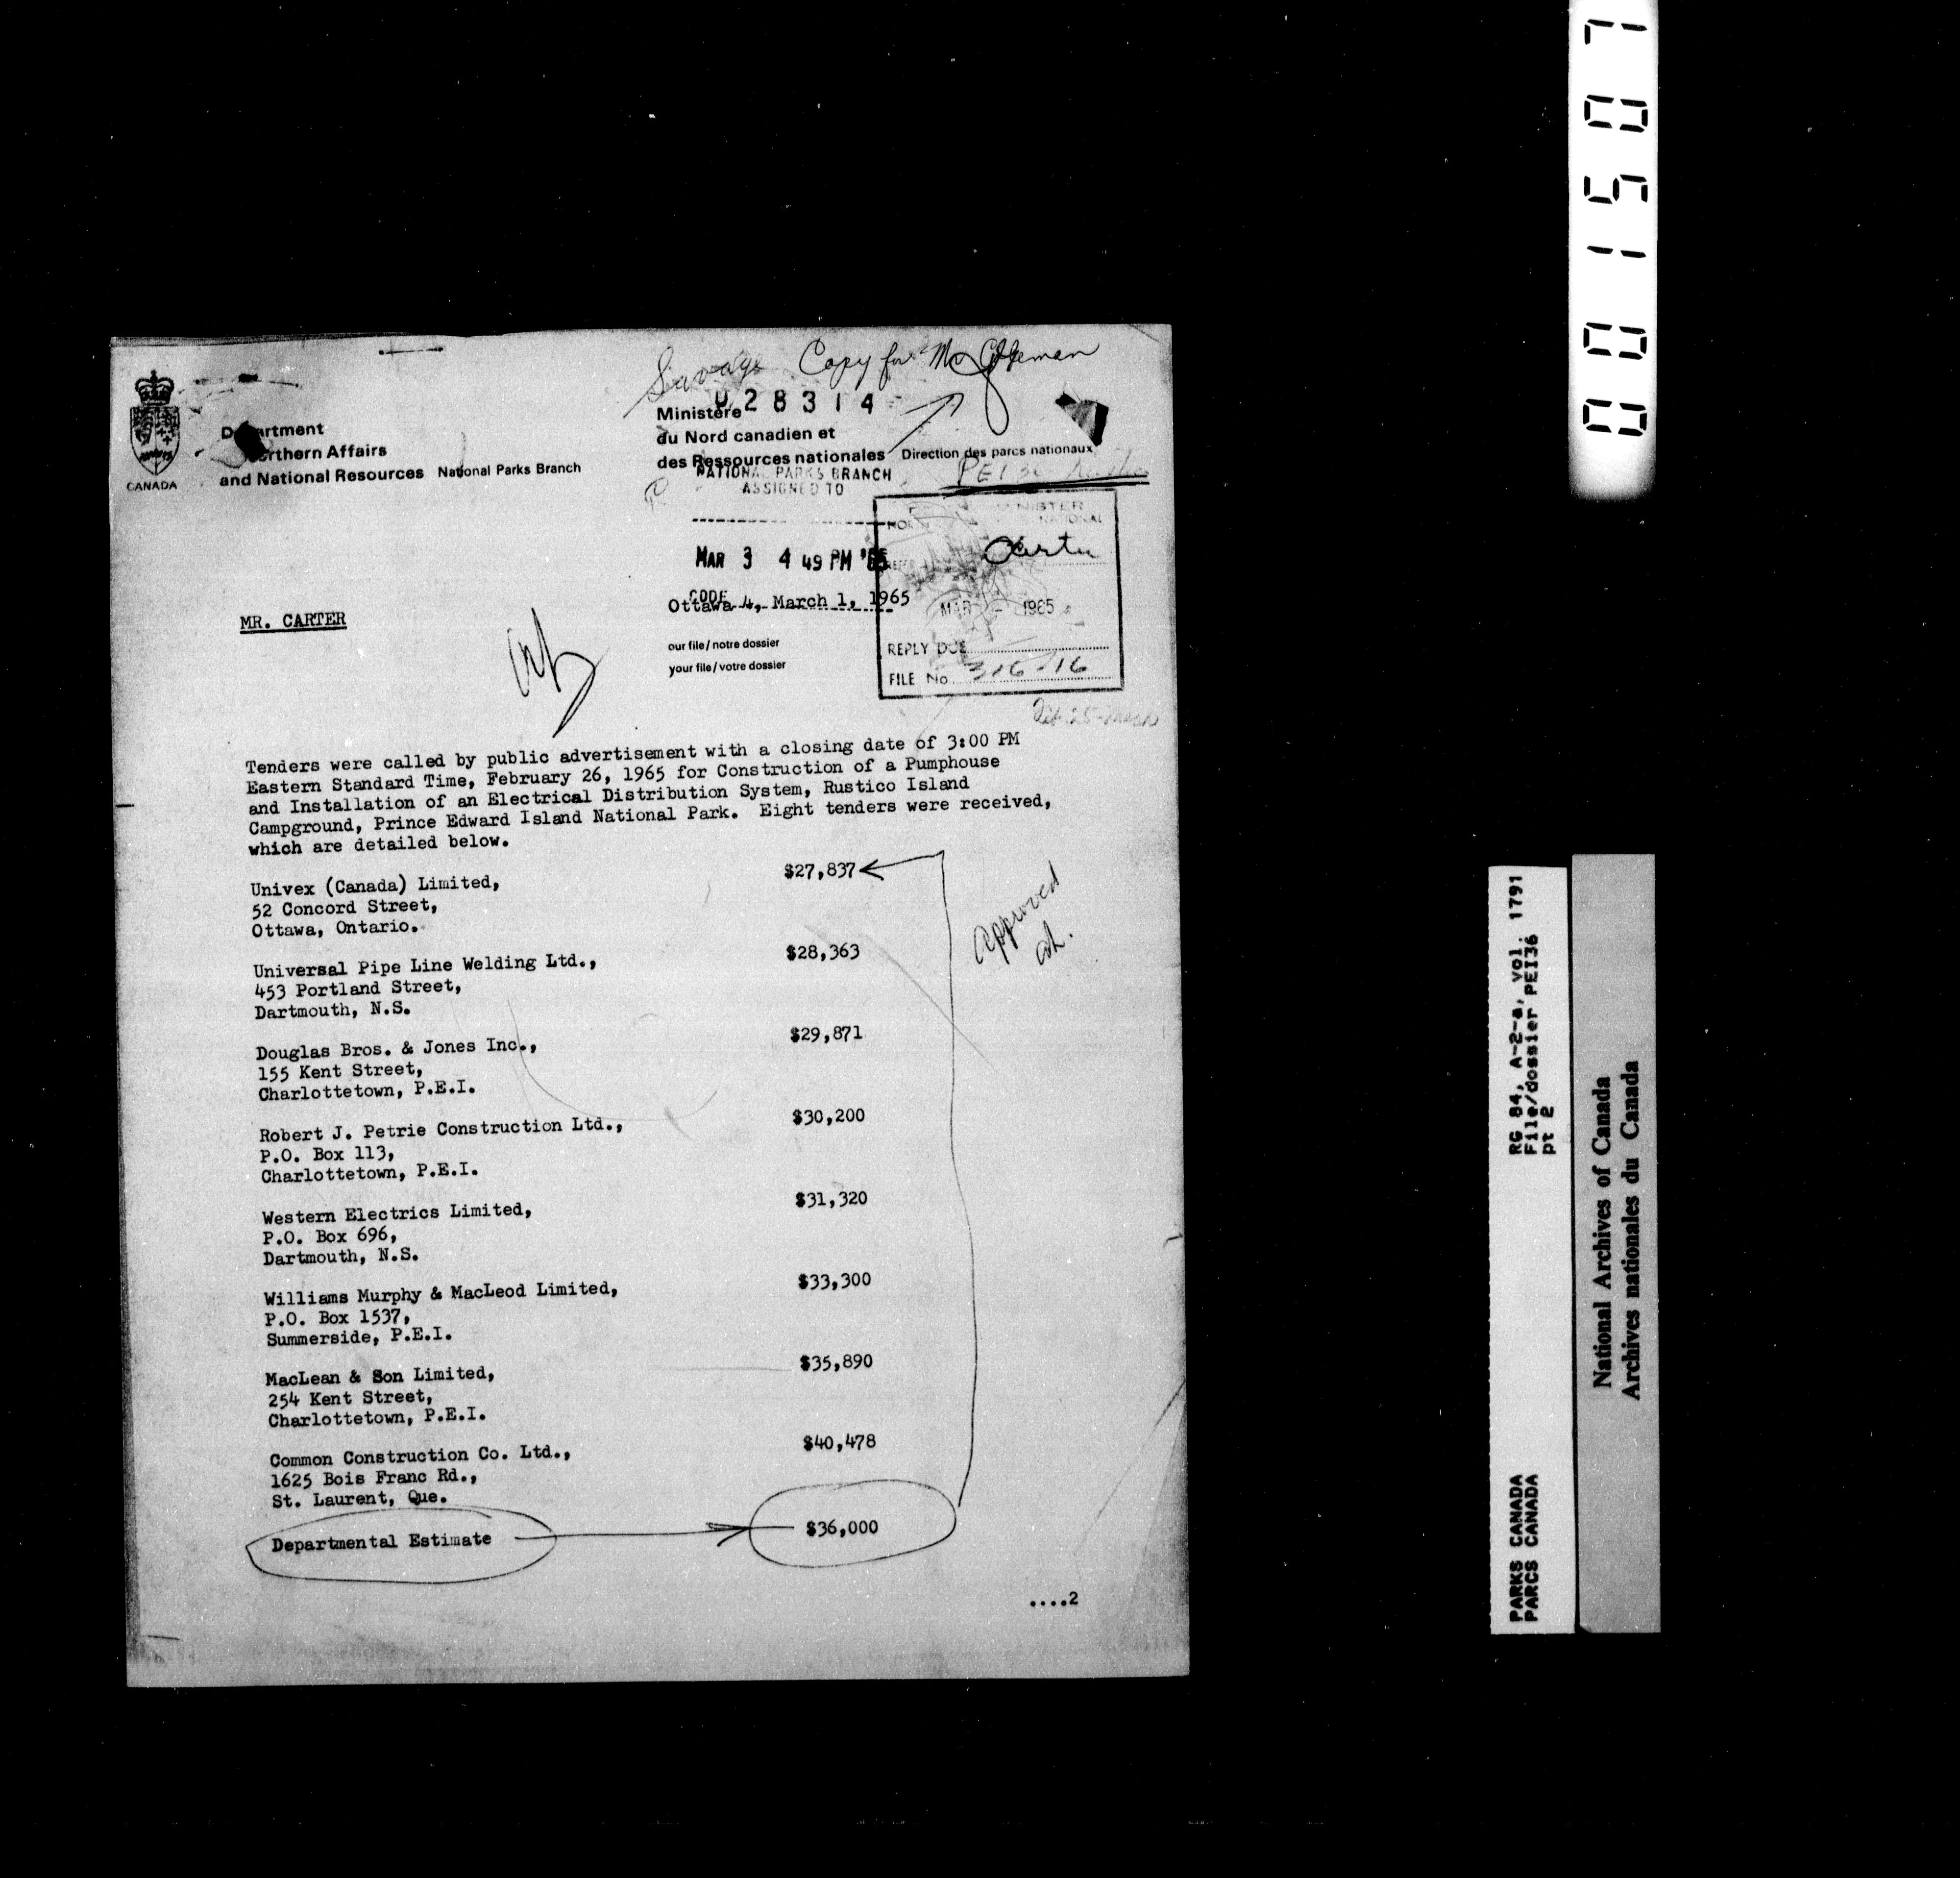 Savage Copy for Mr Coleman
028314
CANADA
Department
Northern Affairs
and National Resources National Parks Branch
Ministère
du Nord canadien et
des Ressources nationales Direction des parcs nationaux
PEI 36
NATIONAL PARKS BRANCH
ASSIGNED TO
MAR 3 4 49 PM '65
CODE
Ottawa 4, March 1, 1965
Carter
MAR 1965
REPLY DUE
FILE No. 316-16
our file/notre dossier
your file/votre dossier
MR. CARTER
Tenders were called by public advertisement with a closing date of 3:00 PM
Eastern Standard Time, February 26, 1965 for Construction of a Pumphouse
and Installation of an Electrical Distribution System, Rustico Island
Campground, Prince Edward Island National Park. Eight tenders were received,
which are detailed below.
Univex (Canada) Limited, $27,837
52 Concord Street,
Ottawa, Ontario.
Approved
Universal Pipe Line Welding Ltd., $28,363
453 Portland Street,
Dartmouth, N.S.
Douglas Bros. & Jones Inc., $29,871
155 Kent Street,
Charlottetown, P.E.I.
Robert J. Petrie Construction Ltd., $30,200
P.O. Box 113,
Charlottetown, P.E.I.
Western Electrics Limited, $31,320
P.O. Box 696,
Dartmouth, N.S.
Williams Murphy & MacLeod Limited, $33,300
P.O. Box 1537,
Summerside, P.E.I.
MacLean & Son Limited, $35,890
254 Kent Street,
Charlottetown, P.E.I.
Common Construction Co. Ltd., $40,478
1625 Bois Franc Rd.,
St. Laurent, Que.
Departmental Estimate $36,000
....2
001507
RG 84, A-2-a, vol. 1791
File/dossier PEI36
pt 2
PARKS CANADA
PARCS CANADA
National Archives of Canada
Archives nationales du Canada